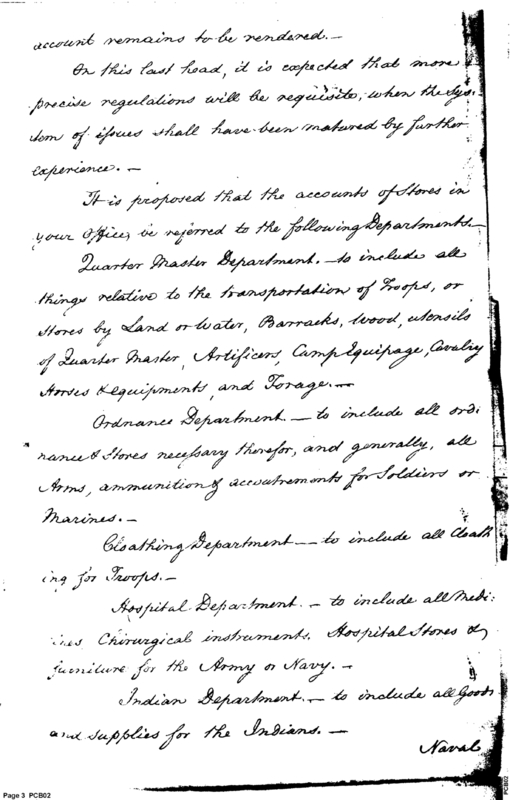 account remains to be rendered. —
On this last head, it is expected that more
precise regulations will be requisite, when the Sys-
tem of issues shall have been matured by further
experience. —
It is proposed that the accounts of Stores in
your Office, be referred to the following Departments. —
Quarter Master Department. — to include all
things relative to the transportation of Troops, or
Stores by Land or Water, Barracks, Wood, utensils
of Quarter Master, Artificers, Camp Equipage, Cavalry
Horses & equipments, and Forage. —
Ordnance Department — to include all ord:
nance & Stores necessary therefor, and generally, all
Arms, ammunition & accoutrements for Soldiers or
Marines. —
Cloathing Department — to include all Cloath
ing for Troops. —
Hospital Department. — to include all Medi:
cines Chirurgical instruments. Hospital Stores &
furniture for the Army or Navy. —
Indian Department. — to include all Goods
and supplies for the Indians. —
Naval
Page 3 PCB02
PCB02